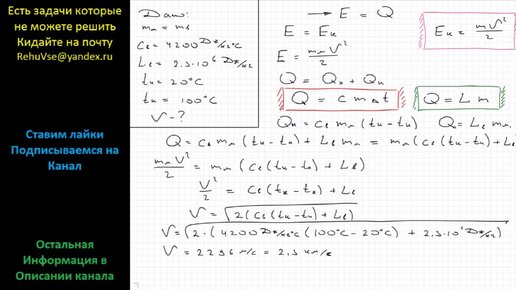 Есть задачи которые
не можете решить
Кидайте на почту
RehuVse@yandex.ru
Ставим лайки
Подписываемся на
Канал
Остальная
Информация в
Описании канала
Дано:
mₙ = mв
Cв = 4200 Дж/кг°C
Lв = 2.3·10⁶ Дж/кг
tн = 20°C
tк = 100°C
V - ?
→ E = Q
E = Eк
E = mₙV²/2
Q = Qн + Qп
Q = c m Δt
Q = L m
Eк = mV²/2
Qн = Cв mₙ (tк - tн) Qп = Lв mₙ
Q = Cв mₙ (tк - tн) + Lв mₙ = mₙ (Cв (tк - tн) + Lв)
mₙV²/2 = mₙ (Cв (tк - tн) + Lв)
V²/2 = Cв (tк - tн) + Lв
V = √2(Cв (tк - tн) + Lв)
V = √2·(4200 Дж/кг°C (100°C - 20°C) + 2.3·10⁶ Дж/кг)
V = 2296 м/с = 2.3 км/с